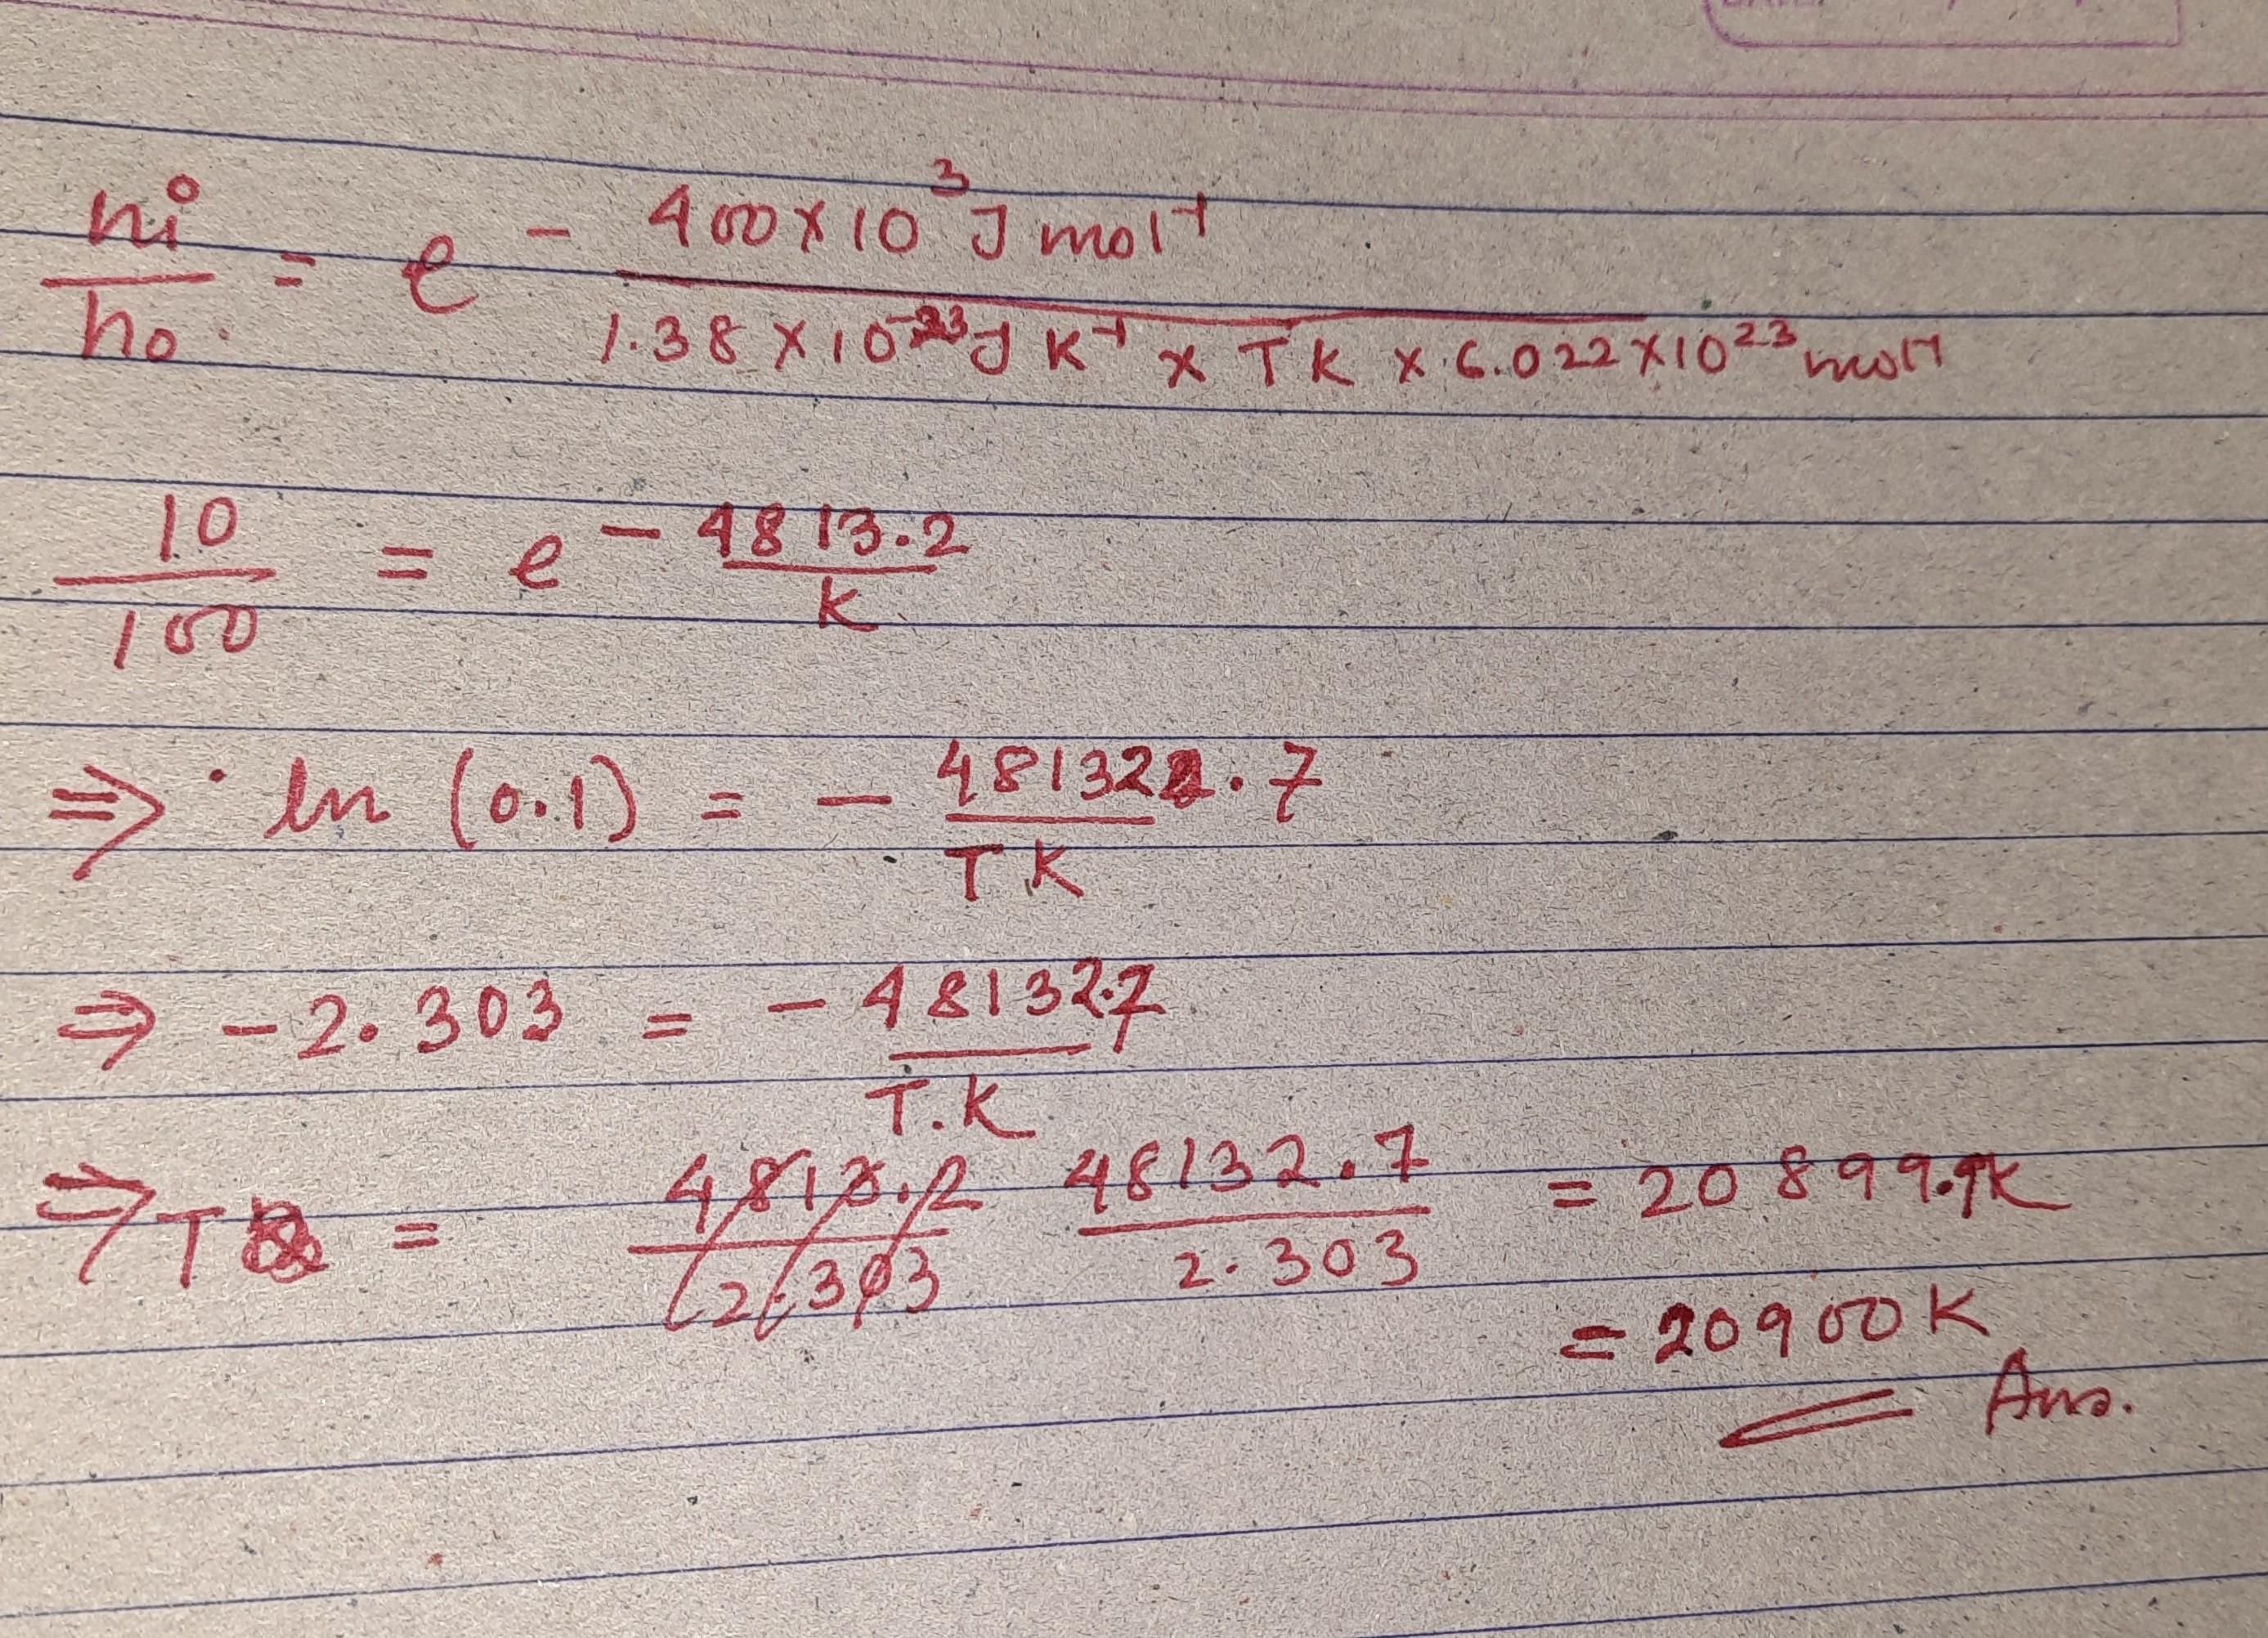 ni/n₀ = e^(- 400×10³ J mol⁻¹ / 1.38×10⁻²³ J K⁻¹ × T K × 6.022×10²³ mol⁻¹)
10/100 = e^(- 4813.2/K)
⇒ ln (0.1) = - 48132.7/T K
⇒ -2.303 = - 48132.7/T.K
⇒ T = 4813.2/2.303 48132.7/2.303 = 20899.9K
= 20900K
Ans.